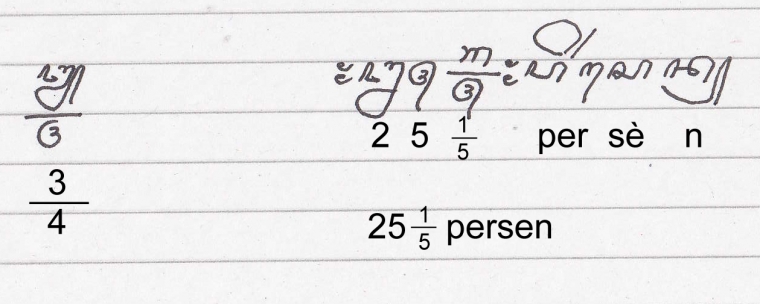 ꧓/꧔
꧇꧒꧕ ꧑/꧕꧇ ꦥꦼꦂꦱꦺꦤ꧀
2 5 1/5 per sè n
3/4
25 1/5 persen